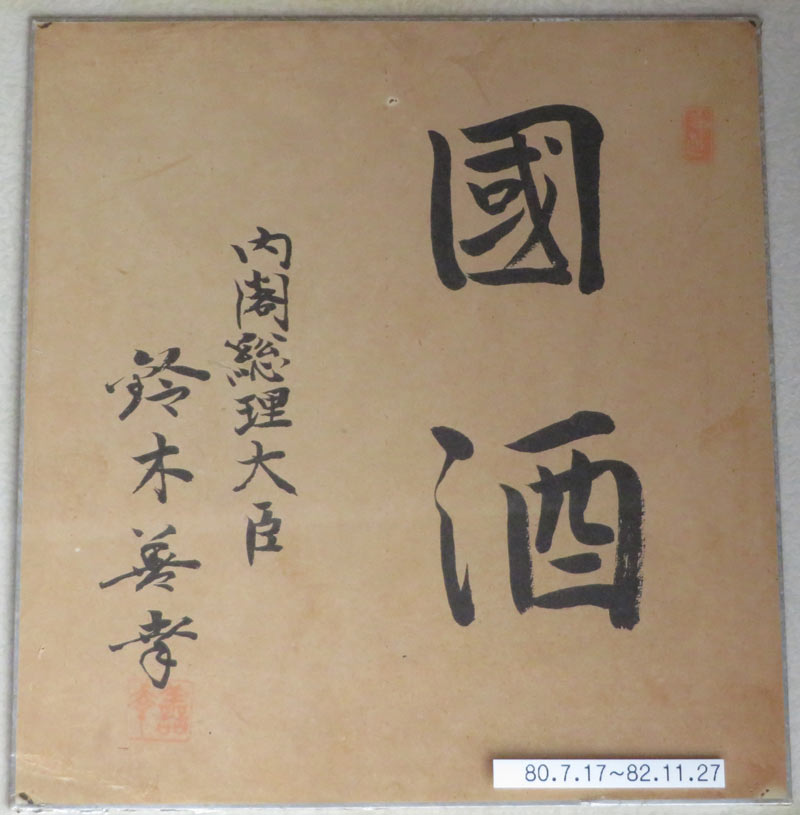 國酒
内閣総理大臣
鈴木善幸
80.7.17~82.11.27